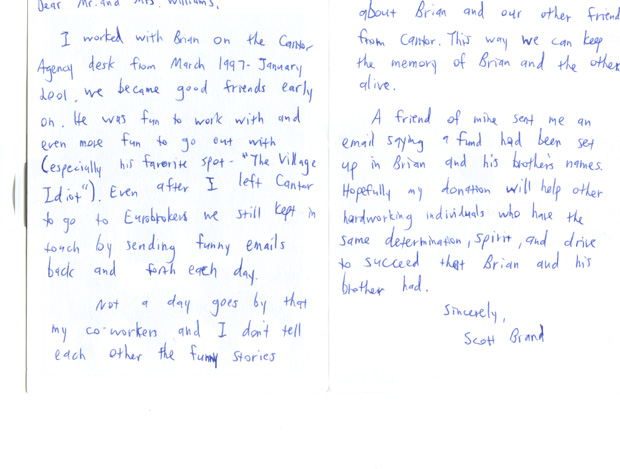 Dear Mr. and Mrs. Williams,
I worked with Brian on the Cantor
Agency desk from March 1997- January
2001. we became good friends early
on. He was fun to work with and
even more fun to go out with
(especially his favorite spot- "The Village
Idiot"). Even after I left Cantor
to go to Eurobrokers we still kept in
touch by sending funny emails
back and forth each day.
Not a day goes by that
my co-workers and I don't tell
each other the funny stories
about Brian and our other friend
from Cantor. This way we can keep
the memory of Brian and the other
alive.
A friend of mine sent me an
email saying a fund had been set
up in Brian and his brother's names.
Hopefully my donation will help other
hardworking individuals who have the
same determination, spirit, and drive
to succeed that Brian and his
brother had.
Sincerely,
Scott Brand